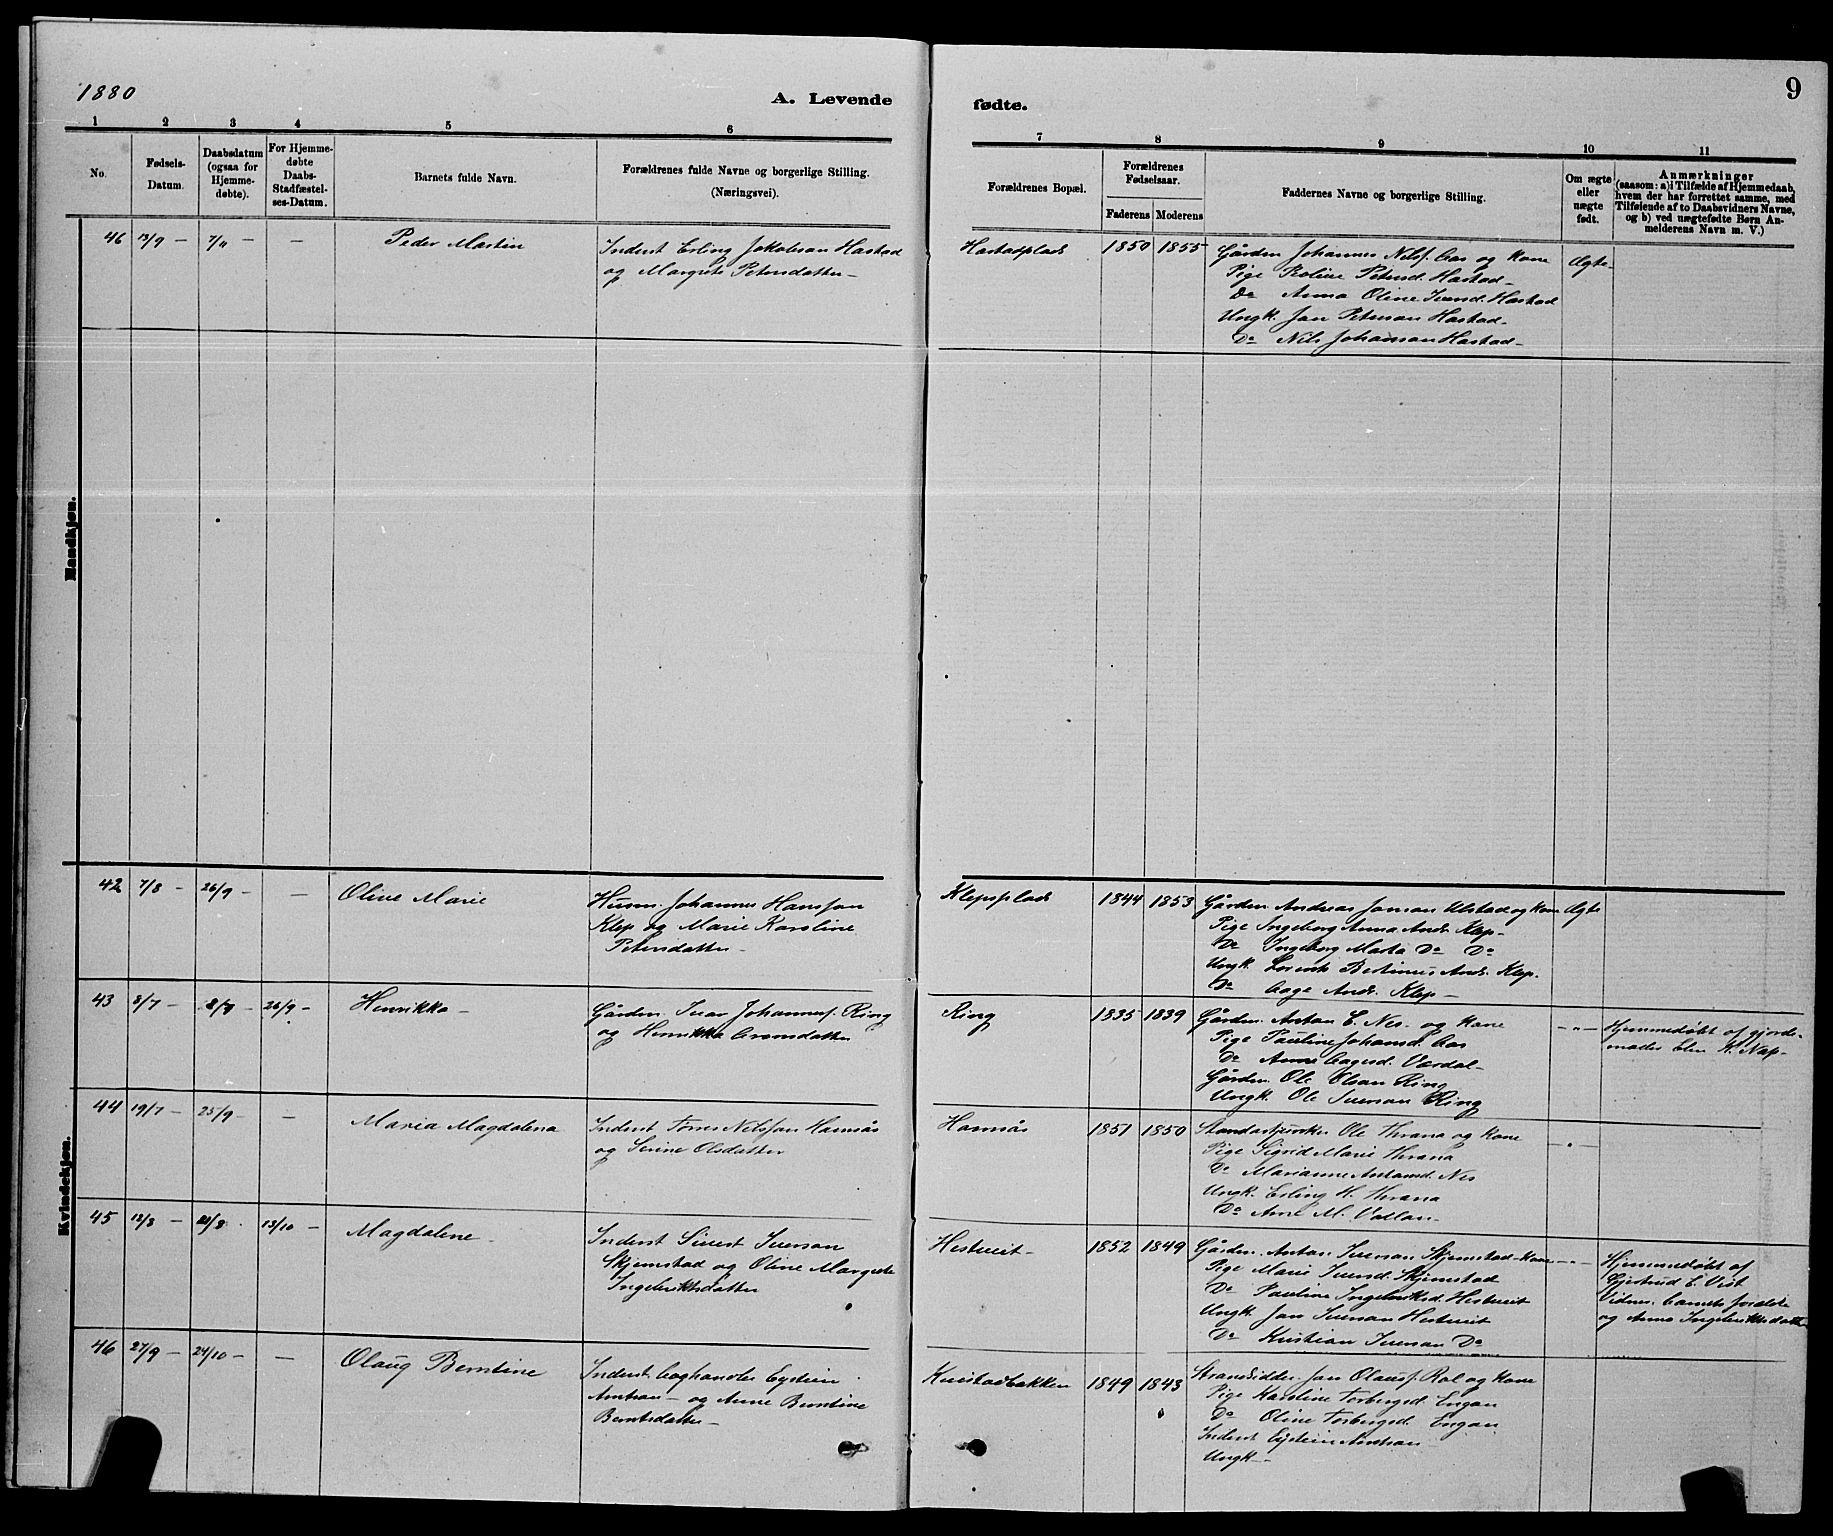 1880
A. Levende
fødte.
9
1 2 3 4 5 6 7 8 9 10 11
No.
Fødsels-
Datum.
Daabsdatum
(ogsaa for
Hjemme-
døbte).
For Hjemme-
døbte
Daabs-
Stadfæstel-
ses-Datum.
Barnets fulde Navn.
Forældrenes fulde Navne og borgerlige Stilling.
(Næringsvei).
Forældrenes Bopæl.
Forældrenes
Fødselsaar.
Faderens Moderens
Faddernes Navne og borgerlige Stilling.
Om ægte
eller
uægte
født.
Anmærkninger
(saasom: a) i Tilfælde af Hjemmedaab,
hvem der har forrettet samme, med
Tilføiende af to Daabsvidners Navne,
og b) ved uægtefødte Børn An-
melderens Navn m. V.)
Mandkjøn.
46 13/9 - 7/11 - - Peder Martin
Inderst Erling Jakobsen Hastad
og Margrete Petersdatter -
Hastadplads 1850 1855
Gården Johannes Nilsf. Aas og Kone
Pige Roline Petersd. Hastad -
Do Anna Oline Iversd. Hastad
Ungk. Jan Peterson Hastad -
Do Nils Johanson Hastad -
Ægte
Kvindekjøn.
42 7/8 - 26/9 - - Oline Marie
Husm. Johannes Hansson
Klep og Marie Karoline
Petersdatter -
Klepsplads 1844 1853
Gården Andreas Janson Ulstad og Kone
Pige Ingeborg Anna Andr. Klep -
Do Ingeborg Marta Do Do
Ungk. Lorents Bertinus Andr. Klep.
Do Aage Andr. Klep -
Ægte
43 8/7 - 8/7 - 26/9 - Henrikka -
Gården Ivar Johannesf. Ring
og Henrikka Aronsdatter
Ring 1835 1839
Gården Anton E. Nes. og Kone
Pige Pauline Johansd. Aas
Do Anne Aagesd. Vordal -
Gården Ole Olson Ring
Ungk. Ole Iverson Ring
- " -
Hjemmedøbt af gjorde-
moder Elen K. Nap -
44 19/7 - 25/9 - - Maria Magdalena
Inderst Torres Nilsson Hamnås
og Serine Olsdatter
Hamnås 1851 1850
Ole Thrana og Kone
Pige Sigrid Marie Thrana
Do Marianne Antonsd. Nes
Ungk. Erling H. Thrana
Do Arnt M. Vollan -
- " -
45 12/8 - 20/8 - 13/10 - Magdalene -
Inderst Sivert Iverson
Skjemstad og Oline Margrete
Ingebriktsdatter
Hestveit - 1852 1849
Gården Anton Iverson Skjemstad - Kone
Pige Marie Iversd. Skjemstad
Do Pauline Ingebriktsd. Hestveit
Ungk. Jan Iverson Hestveit
Do Kristian Iverson Do
- " -
Hjemmedøbt af
Gjertrud E. Vist
Vidner. barnets forældre
og Anna Ingebriktsdatter
46 27/9 - 24/10 - - Olaug Berntine
Inderst. Baghandler Eystein
Arntson - og Anne Berntine
Berntsdatter -
Kvistadbakken 1849 1843
Strandsidder Jan Olausf. Rol og Kone
Pige Karoline Torbergsd. Engan
Do Oline Torbergsd. Engan
Inderst Eystein Arntson
Ungk -